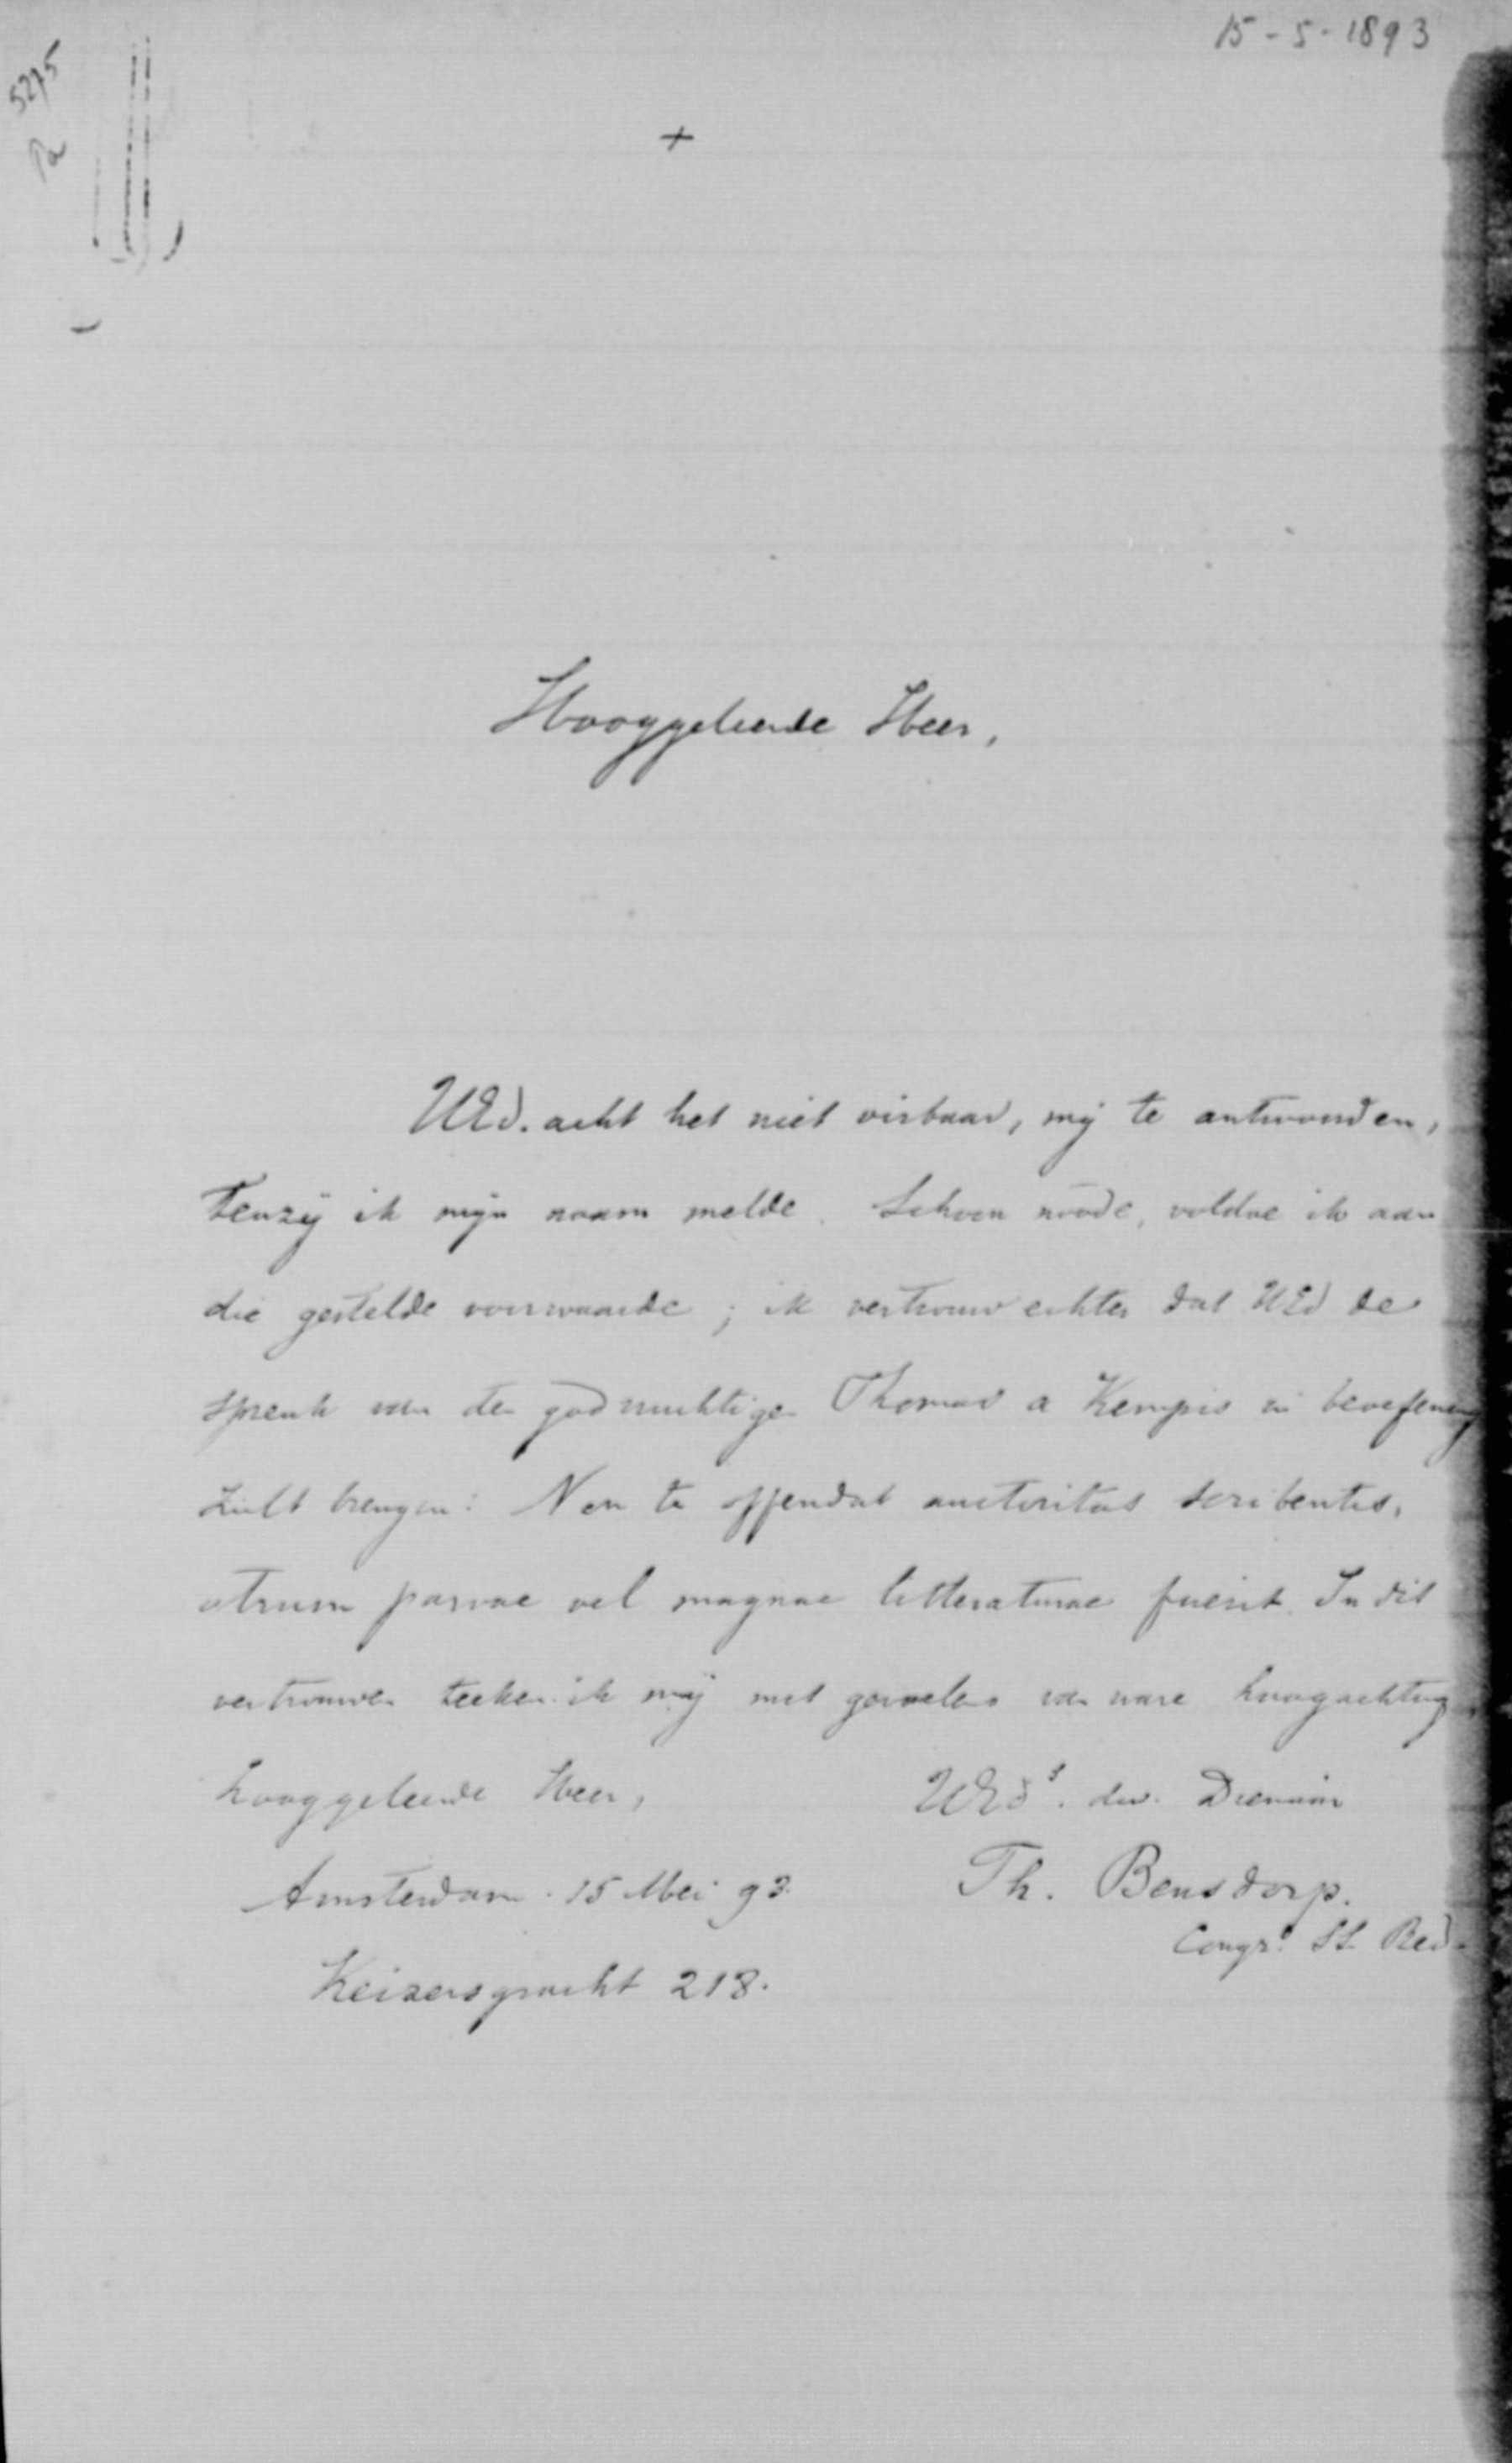 15-5-1893
5275
Pa
+
Hooggeleerde Heer,
UEd. acht het niet oirbaar, mij te antwoorden,
tenzij ik mijn naam melde. Schoon noode, voldoe ik aan
die gestelde voorwaarde; ik vertrouw echter dat UEd de
spreuk van den godvruchtigen Thomas a Kempis in beoefening
zult brengen: Non te offendat auctoritas scribentis,
utrum parvae vel magnae litteraturae fuerit. In dit
vertrouwen teeken ik mij met gevoelens van ware hoogachting,
hooggeleerde Heer,
UEds. dw. Dienaar
Amsterdam. 15 Mei 93.
Th. Bensdorp.
Congr. SS. Red.
Keizersgracht 218.